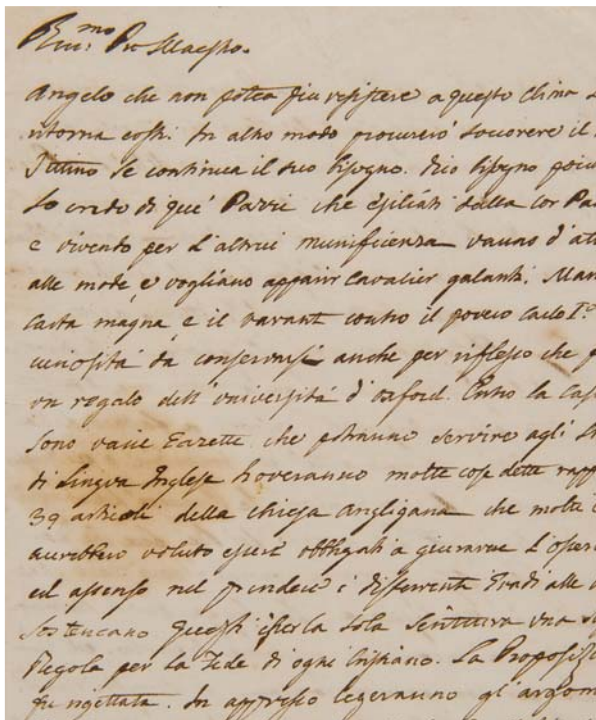 R.mo P.re Maestro.
Angelo che non potea piu resistere a questo clima
ritorna costì. In altro modo procurerò soccorere il
se continua il suo bisogno. Dico bisogno
Io credo di que' Parrii che esiliati dalla lor
e vivento per l'altrui munificenza vanno d'
alle mode, e vogliano apparir Cavalier galanti.
Carta magna, e il varant contro il povero Carlo I.o
curiosità da conservarsi anche per riflesso che
un regalo dell'università d'oxford. Entro la
sono varie Gazette, che potranno servire agli
di Lingua Inglese troveranno molte cose dette
39 articoli della chiesa Angligana che molti
aurebbero voluto esser obbligati a giurarne l'
ed assenso nel prendere i differenti Gradi alle
Sostencano questi esser la sola Scrittura una
Regola per la Fede di ogni Cristiano. La
fu rigettata. In appresso legeranno gl'